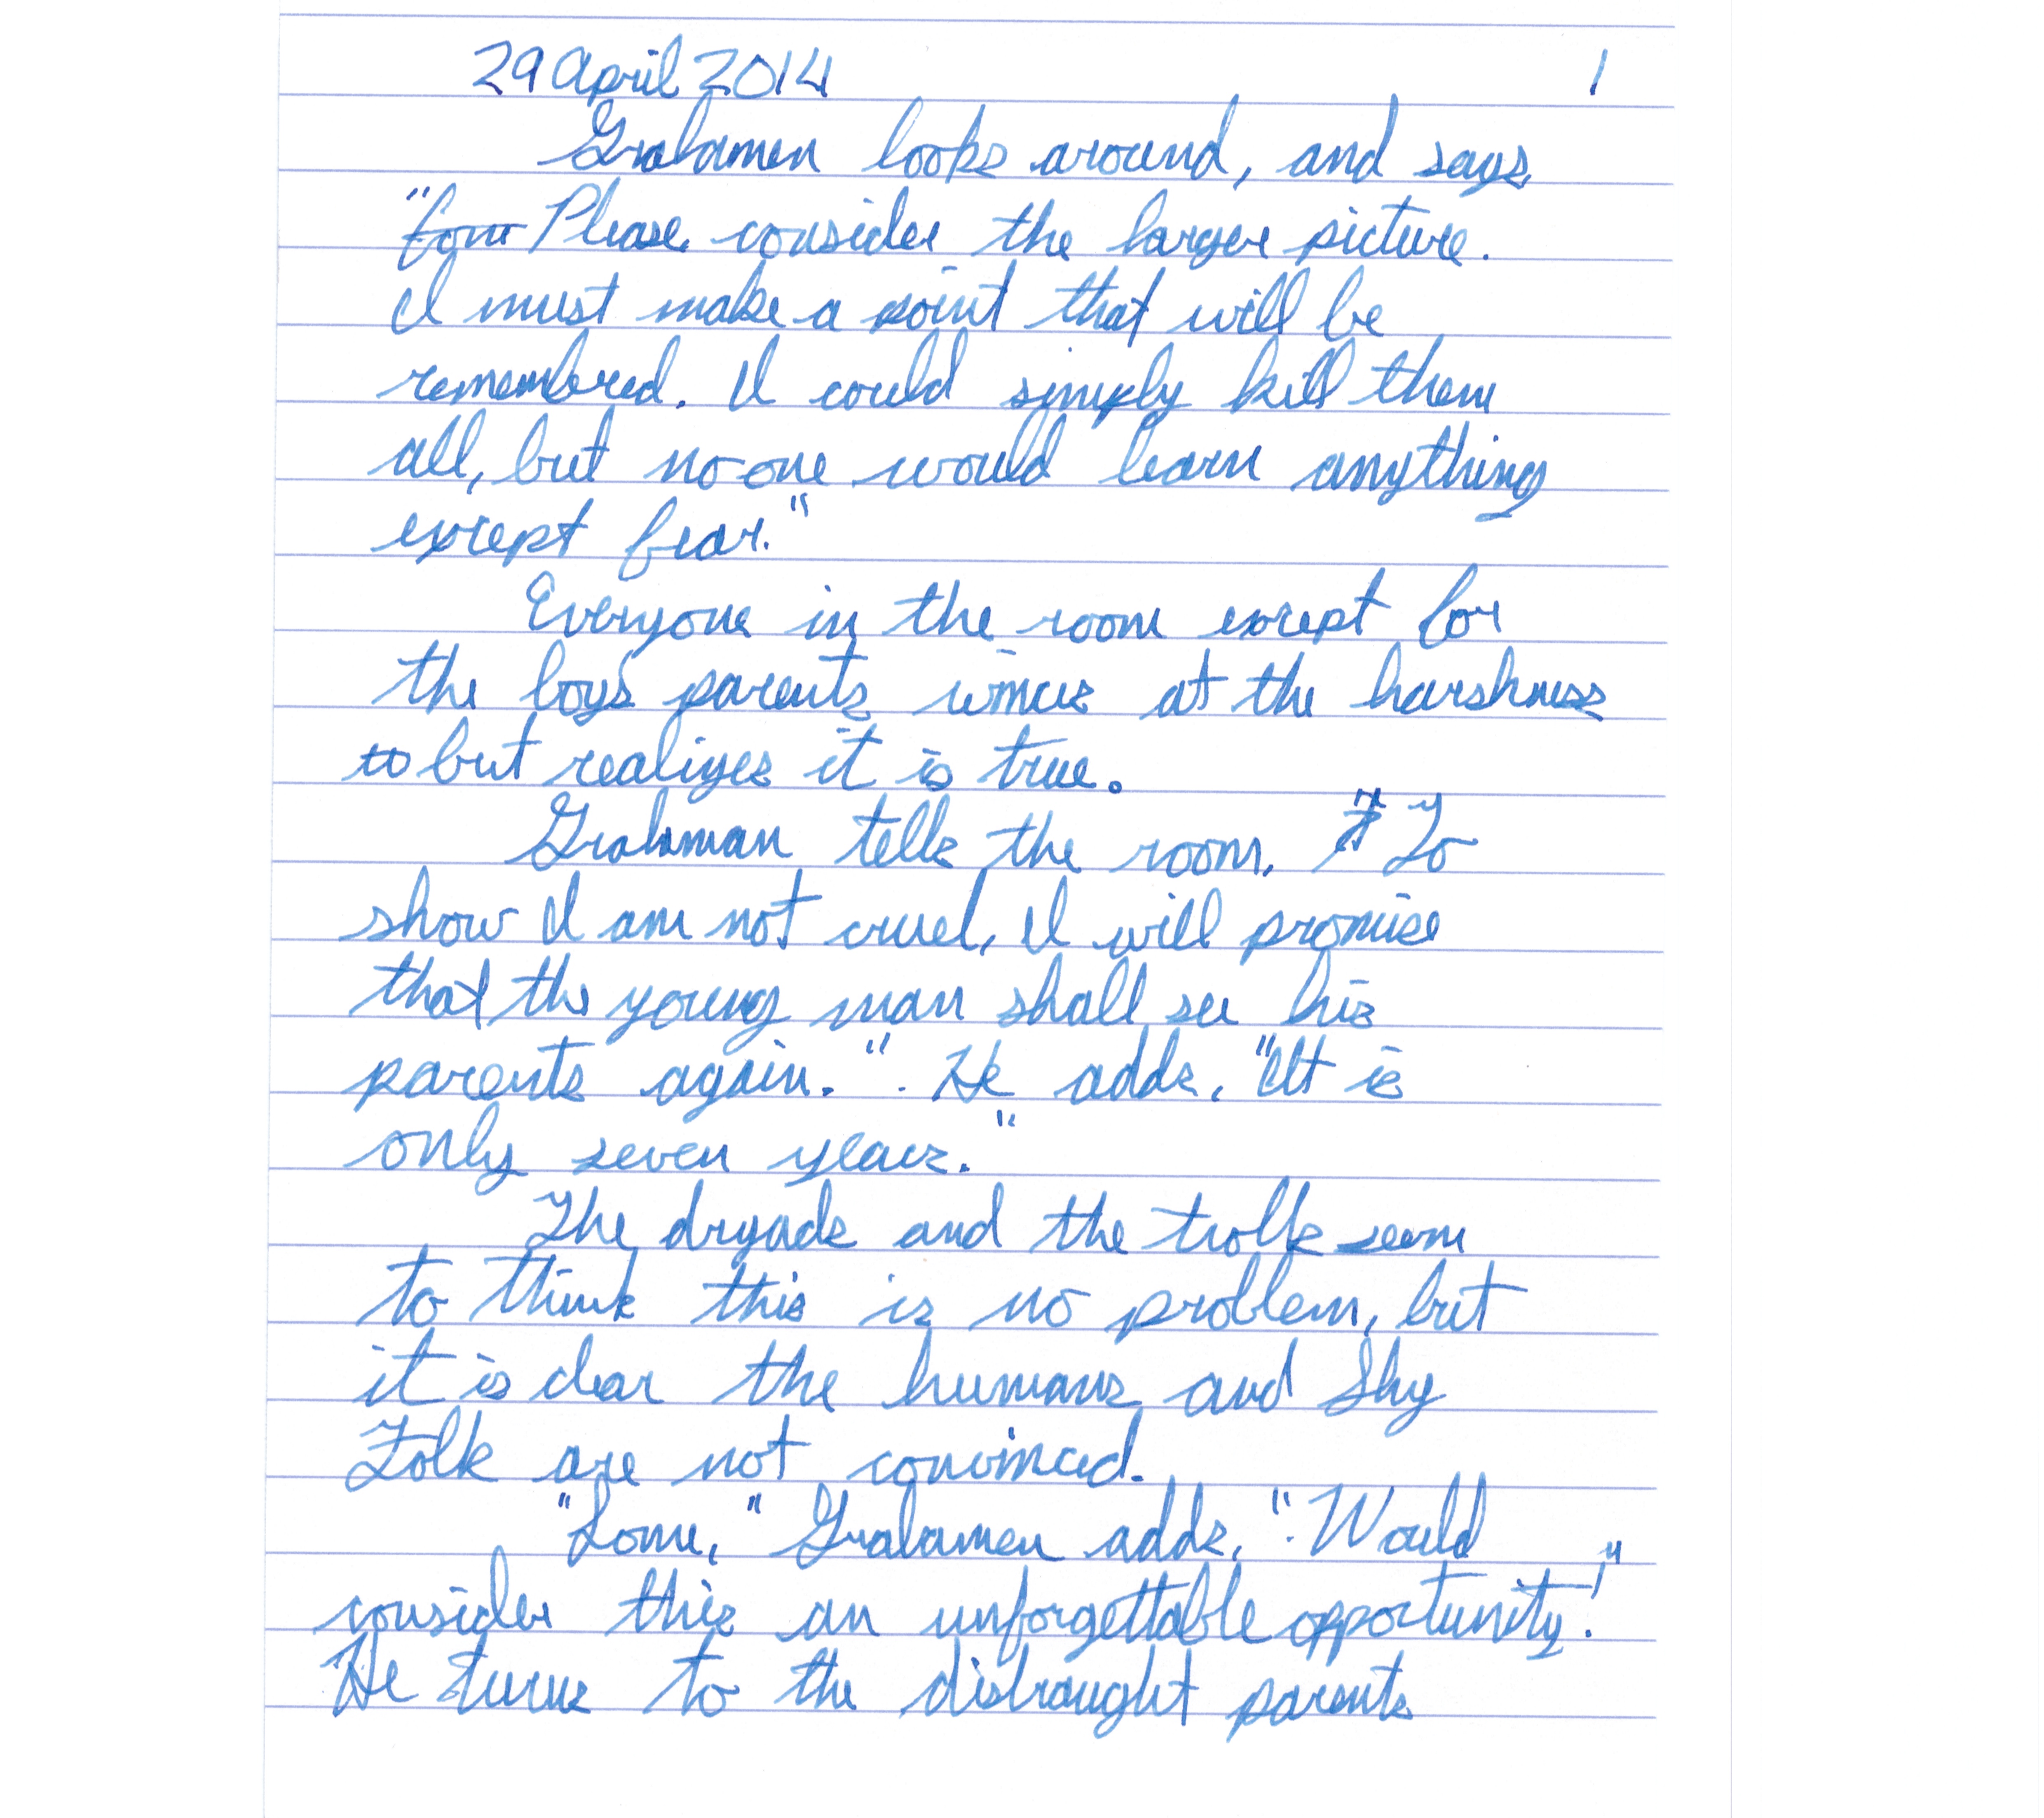 29 April 2014 1
Gralamen looks around, and says,
"four Please consider the larger picture.
I must make a point that will be
remembered. I could simply kill them
all, but no one would learn anything
except fear."
Everyone in the room except for
the boys parents wince at the harshness
to but realizes it is true.
Gralaman tells the room, "To
show I am not cruel, I will promise
that the young man shall see his
parents again." . He adds, "It is
only seven years."
The dryads and the trolls seem
to think this is no problem, but
it is clear the humans and Shy
Folk are not convinced.
"Some," Gralamen adds, "Would
consider this an unforgettable opportunity!"
He turns to the distraught parents